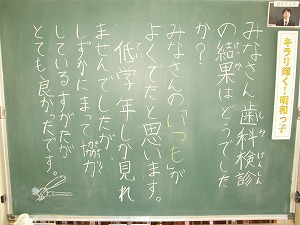 キラリ輝く!明和っ子
みなさん歯科検診
しか けんしん
の結果はどうでした
けっか
か?
みなさんの"いつも"が
よくでたと思います。
低学年しか見れ
ませんでしたが、
しずかにまって協力
しているすがたが
とても良かったです。